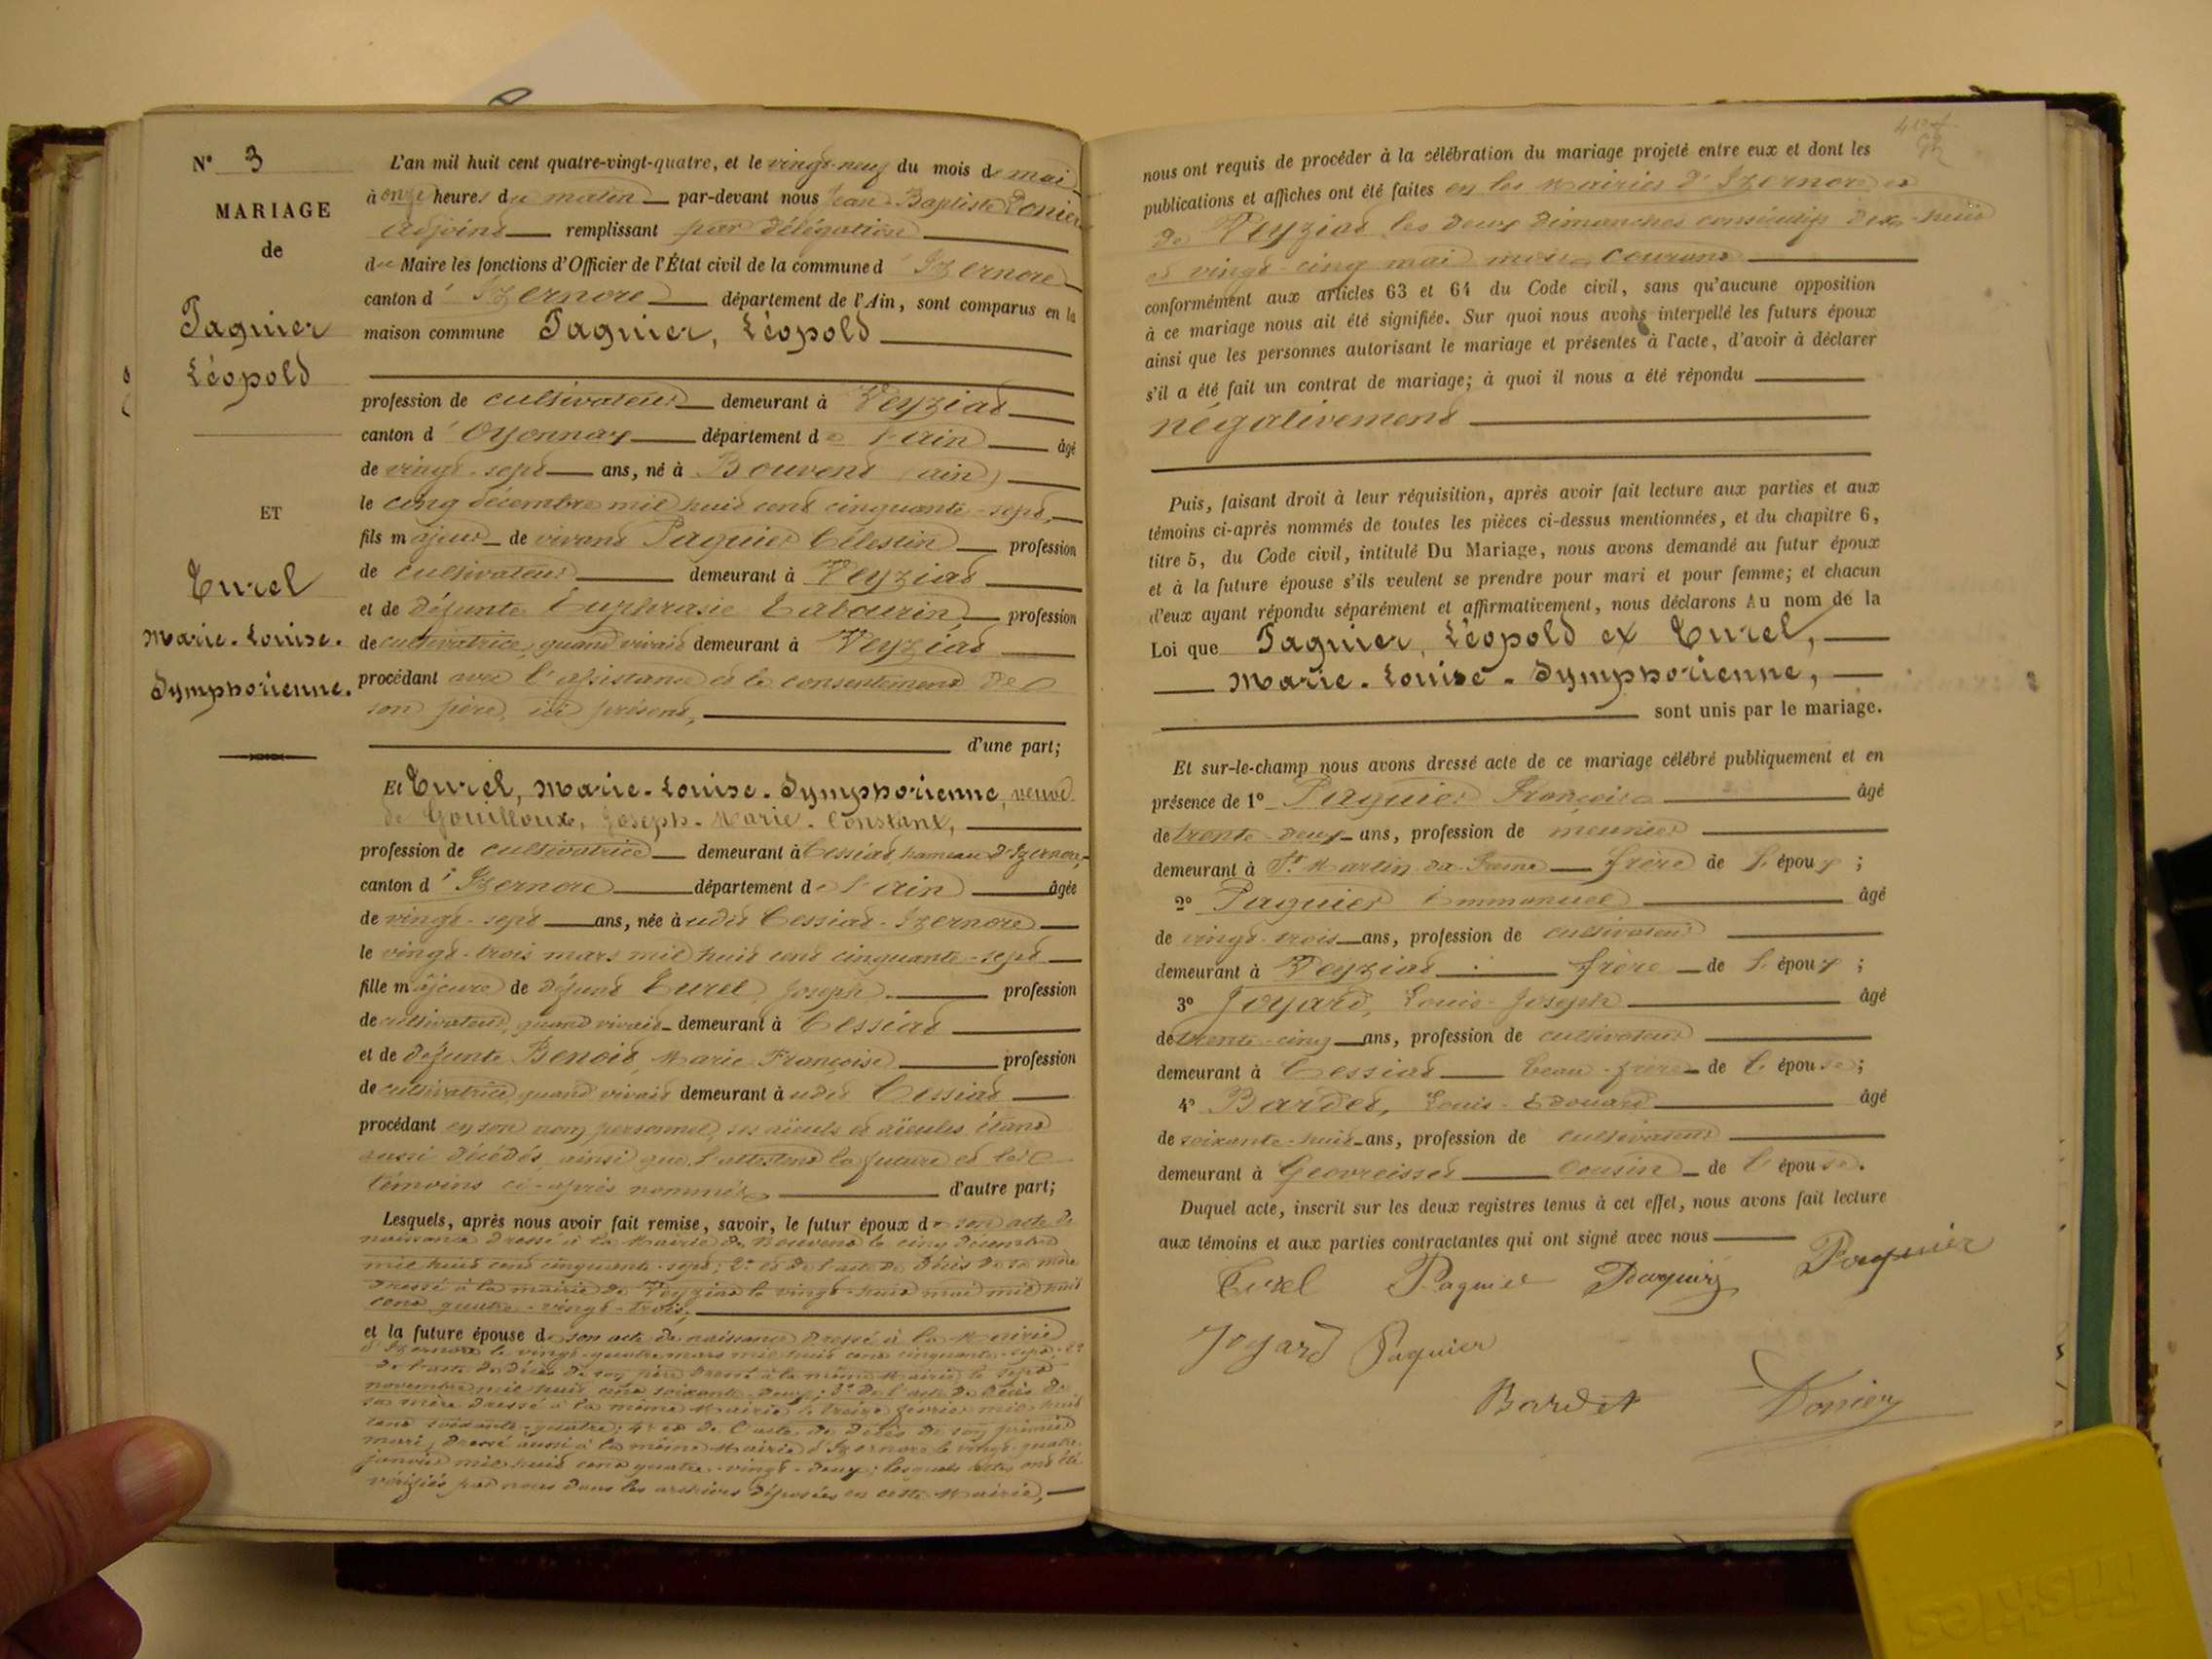 N° 3
MARIAGE
de
Paquier
Léopold
ET
Turel
Marie-Louise-
Symphorienne.
L'an mil huit cent quatre-vingt-quatre, et le vingt-neuf du mois de mai
à onze heures du matin par-devant nous Jean-Baptiste Donier
adjoint remplissant par délégation
du Maire les fonctions d'Officier de l'État civil de la commune d'Izernore
canton d'Izernore département de l'Ain, sont comparus en la
maison commune Paquier, Léopold
profession de cultivateur demeurant à Veyziat
canton d'Oyonnax département de l'ain âgé
de vingt-sept ans, né à Bouvent (ain)
le cinq décembre mil huit cent cinquante-sept,
fils majeur de vivant Paquier Célestin profession
de cultivateur demeurant à Veyziat
et de défunte Euphrasie Tabourin, profession
de cultivatrice, quand vivait demeurant à Veyziat
procédant avec l'assistance et le consentement de
son père, ici présent,
d'une part;
Et Turel, Marie-Louise-Symphorienne, veuve
de Gouilloux, Joseph-Marie-Constant,
profession de cultivatrice demeurant à Cessiat, hameau d'Izernore,
canton d'Izernore département de l'ain âgée
de vingt-sept ans, née à udit Cessiat-Izernore
le vingt-trois mars mil huit cent cinquante-sept
fille majeure de défunt Turel Joseph profession
de cultivateur, quand vivait demeurant à Cessiat
et de défunte Benoit, Marie Françoise profession
de cultivatrice, quand vivait demeurant à udit Cessiat
procédant en son nom personnel, ses aïeuls et aïeules étant
aussi décédés, ainsi que l'attestent la future et les
témoins ci-après nommés d'autre part;
Lesquels, après nous avoir fait remise, savoir, le futur époux de son acte de
naissance dressé à la Mairie de Bouvent le cinq décembre
mil huit cent cinquante-sept; 2° et de l'acte de décès de sa mère
dressé à la mairie de Veyziat le vingt-huit mai mil huit
cent quatre-vingt-trois;
et la future épouse de son acte de naissance dressé à la Mairie
d'Izernore le vingt-quatre mars mil huit cent cinquante-sept; 2°
de l'acte de décès de son père dressé à la même Mairie le sept
novembre mil huit cent soixante-deux; 3° de l'acte de décès de
sa mère dressé à la même Mairie le treize février mil huit
cent soixante-quatre; 4° et de l'acte de décès de son premier
mari, dressé aussi à la même Mairie d'Izernore le vingt-quatre
janvier mil huit cent quatre-vingt-deux; lesquels actes ont été
vérifiés par nous dans les archives déposées en cette Mairie,
nous ont requis de procéder à la célébration du mariage projeté entre eux et dont les
publications et affiches ont été faites en les Mairies d'Izernore et
de Veyziat les deux dimanches consécutifs dix-huit
et vingt-cinq mai mois courant
conformément aux articles 63 et 64 du Code civil, sans qu'aucune opposition
à ce mariage nous ait été signifiée. Sur quoi nous avons interpellé les futurs époux
ainsi que les personnes autorisant le mariage et présentes à l'acte, d'avoir à déclarer
s'il a été fait un contrat de mariage; à quoi il nous a été répondu
négativement
Puis, faisant droit à leur réquisition, après avoir fait lecture aux parties et aux
témoins ci-après nommés de toutes les pièces ci-dessus mentionnées, et du chapitre 6,
titre 5, du Code civil, intitulé Du Mariage, nous avons demandé au futur époux
et à la future épouse s'ils veulent se prendre pour mari et pour femme; et chacun
d'eux ayant répondu séparément et affirmativement, nous déclarons Au nom de la
Loi que Paquier, Léopold et Turel,
Marie-Louise-Symphorienne,
sont unis par le mariage.
Et sur-le-champ nous avons dressé acte de ce mariage célébré publiquement et en
présence de 1° Paquier François âgé
de trente-deux ans, profession de meunier
demeurant à St Martin du Frêne frère de l'époux;
2° Paquier Emmanuel âgé
de vingt-trois ans, profession de cultivateur
demeurant à Veyziat frère de l'époux;
3° Joyard, Louis-Joseph âgé
de trente-cinq ans, profession de cultivateur
demeurant à Cessiat beau-frère de l'épouse;
4° Bardet, Louis-Edouard âgé
de soixante-huit ans, profession de cultivateur
demeurant à Geovreisset cousin de l'épouse.
Duquel acte, inscrit sur les deux registres tenus à cet effet, nous avons fait lecture
aux témoins et aux parties contractantes qui ont signé avec nous
Turel Paquier Paquier Paquier
Joyard Paquier
Bardet Donier